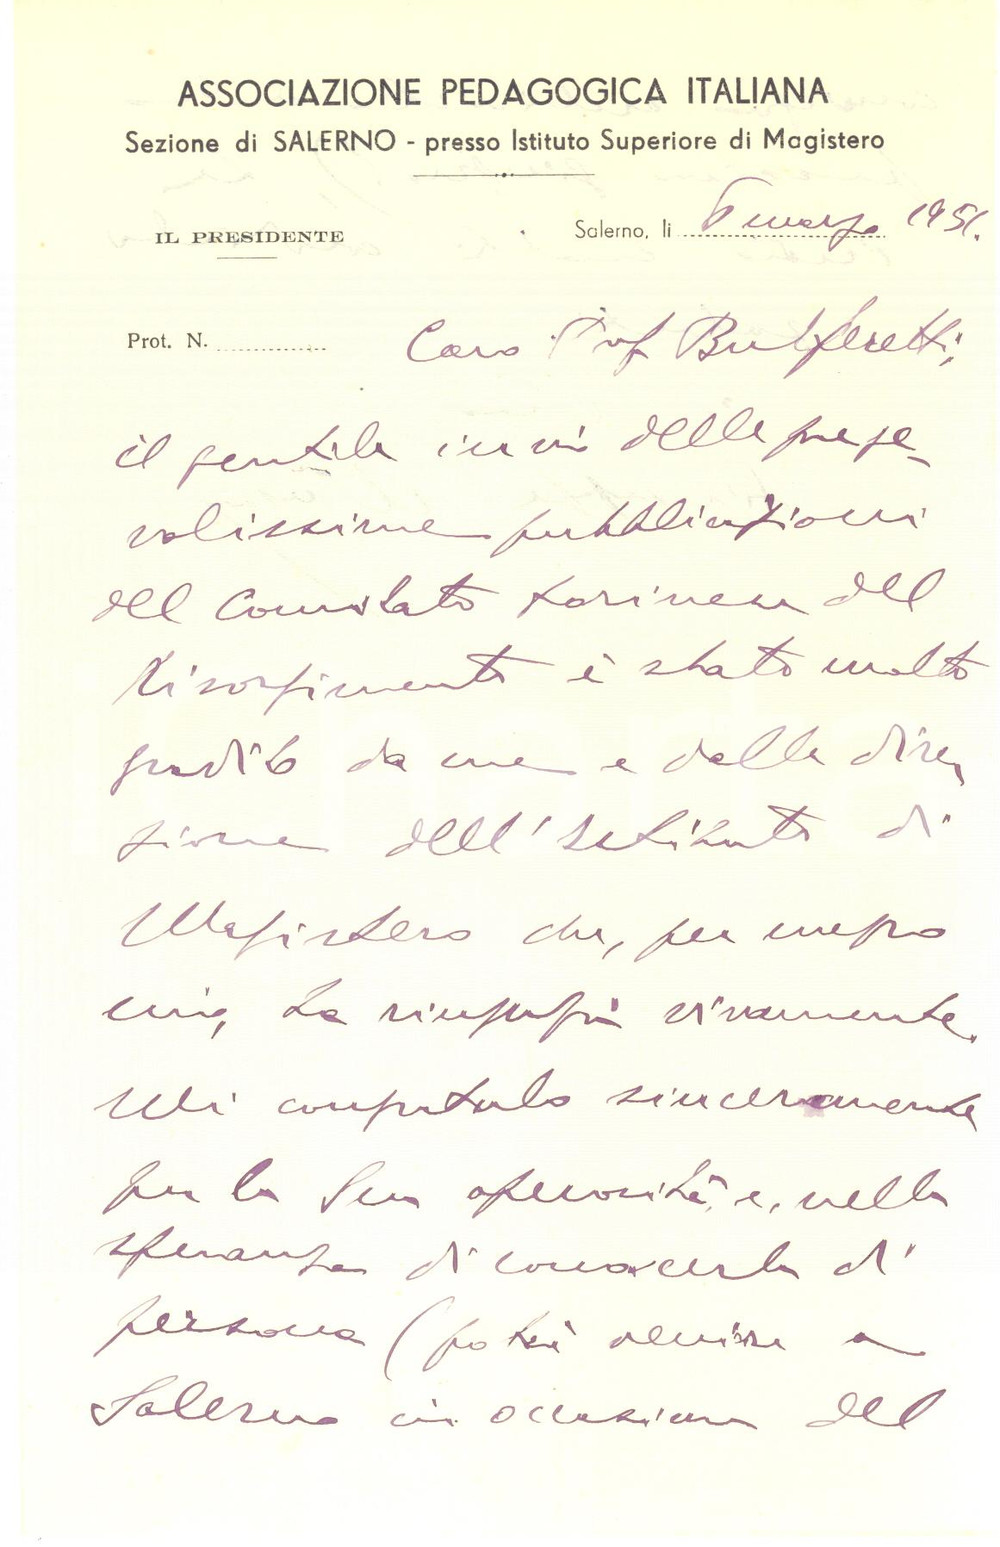 ASSOCIAZIONE PEDAGOGICA ITALIANA
Sezione di SALERNO - presso Istituto Superiore di Magistero
IL PRESIDENTE
Salerno, li 6 marzo 1951.
Prot. N.
Caro Prof Bulferetti,
il gentile invio delle prege-
volissime pubblicazioni
del Comitato torinese del
Risorgimento è stato molto
gradito da me e dalla dire
zione dell'Istituto di
Magistero che, per mezzo
mio, La ringrazia vivamente.
Mi congratulo sinceramente
per la Sua operosità, e, nella
speranza di conoscerla di
persona (potrà venire a
Salerno in occasione del